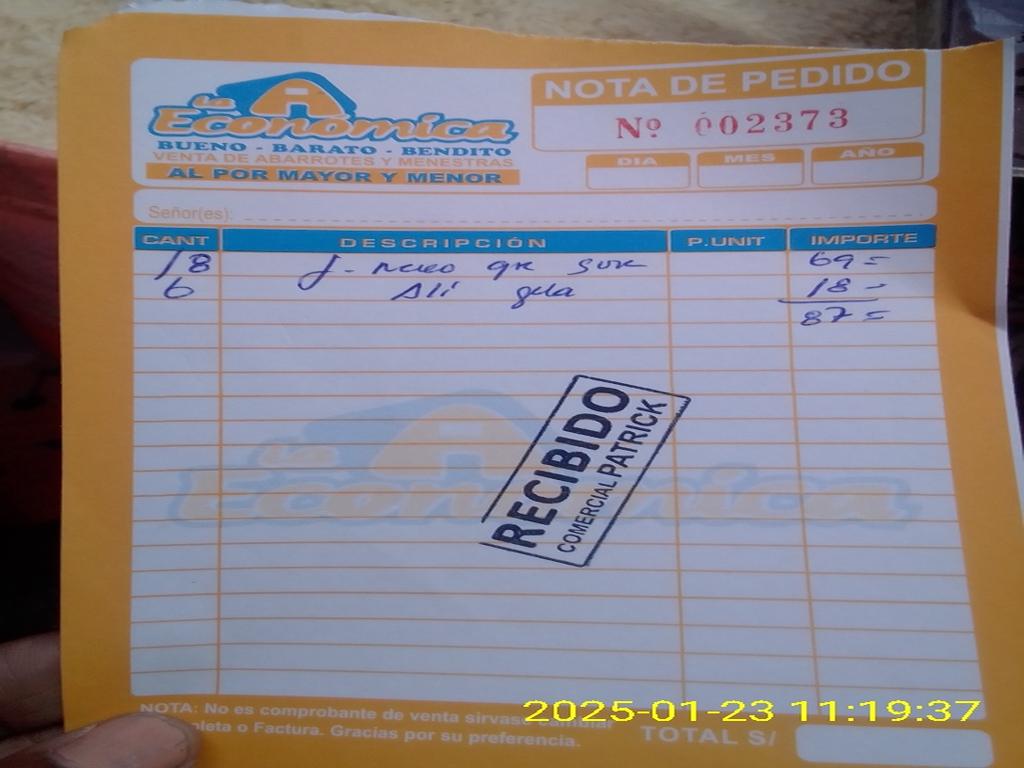 La Económica
BUENO - BARATO - BENDITO
VENTA DE ABARROTES Y MENESTRAS
AL POR MAYOR Y MENOR
NOTA DE PEDIDO
Nº 002373
DIA MES AÑO
Señor(es):
CANT DESCRIPCIÓN P.UNIT IMPORTE
18 69=
6 18-
87=
La Económica
RECIBIDO
COMERCIAL PATRICK
NOTA: No es comprobante de venta
o Factura. Gracias por su preferencia.
TOTAL S/
2025-01-23 11:19:37